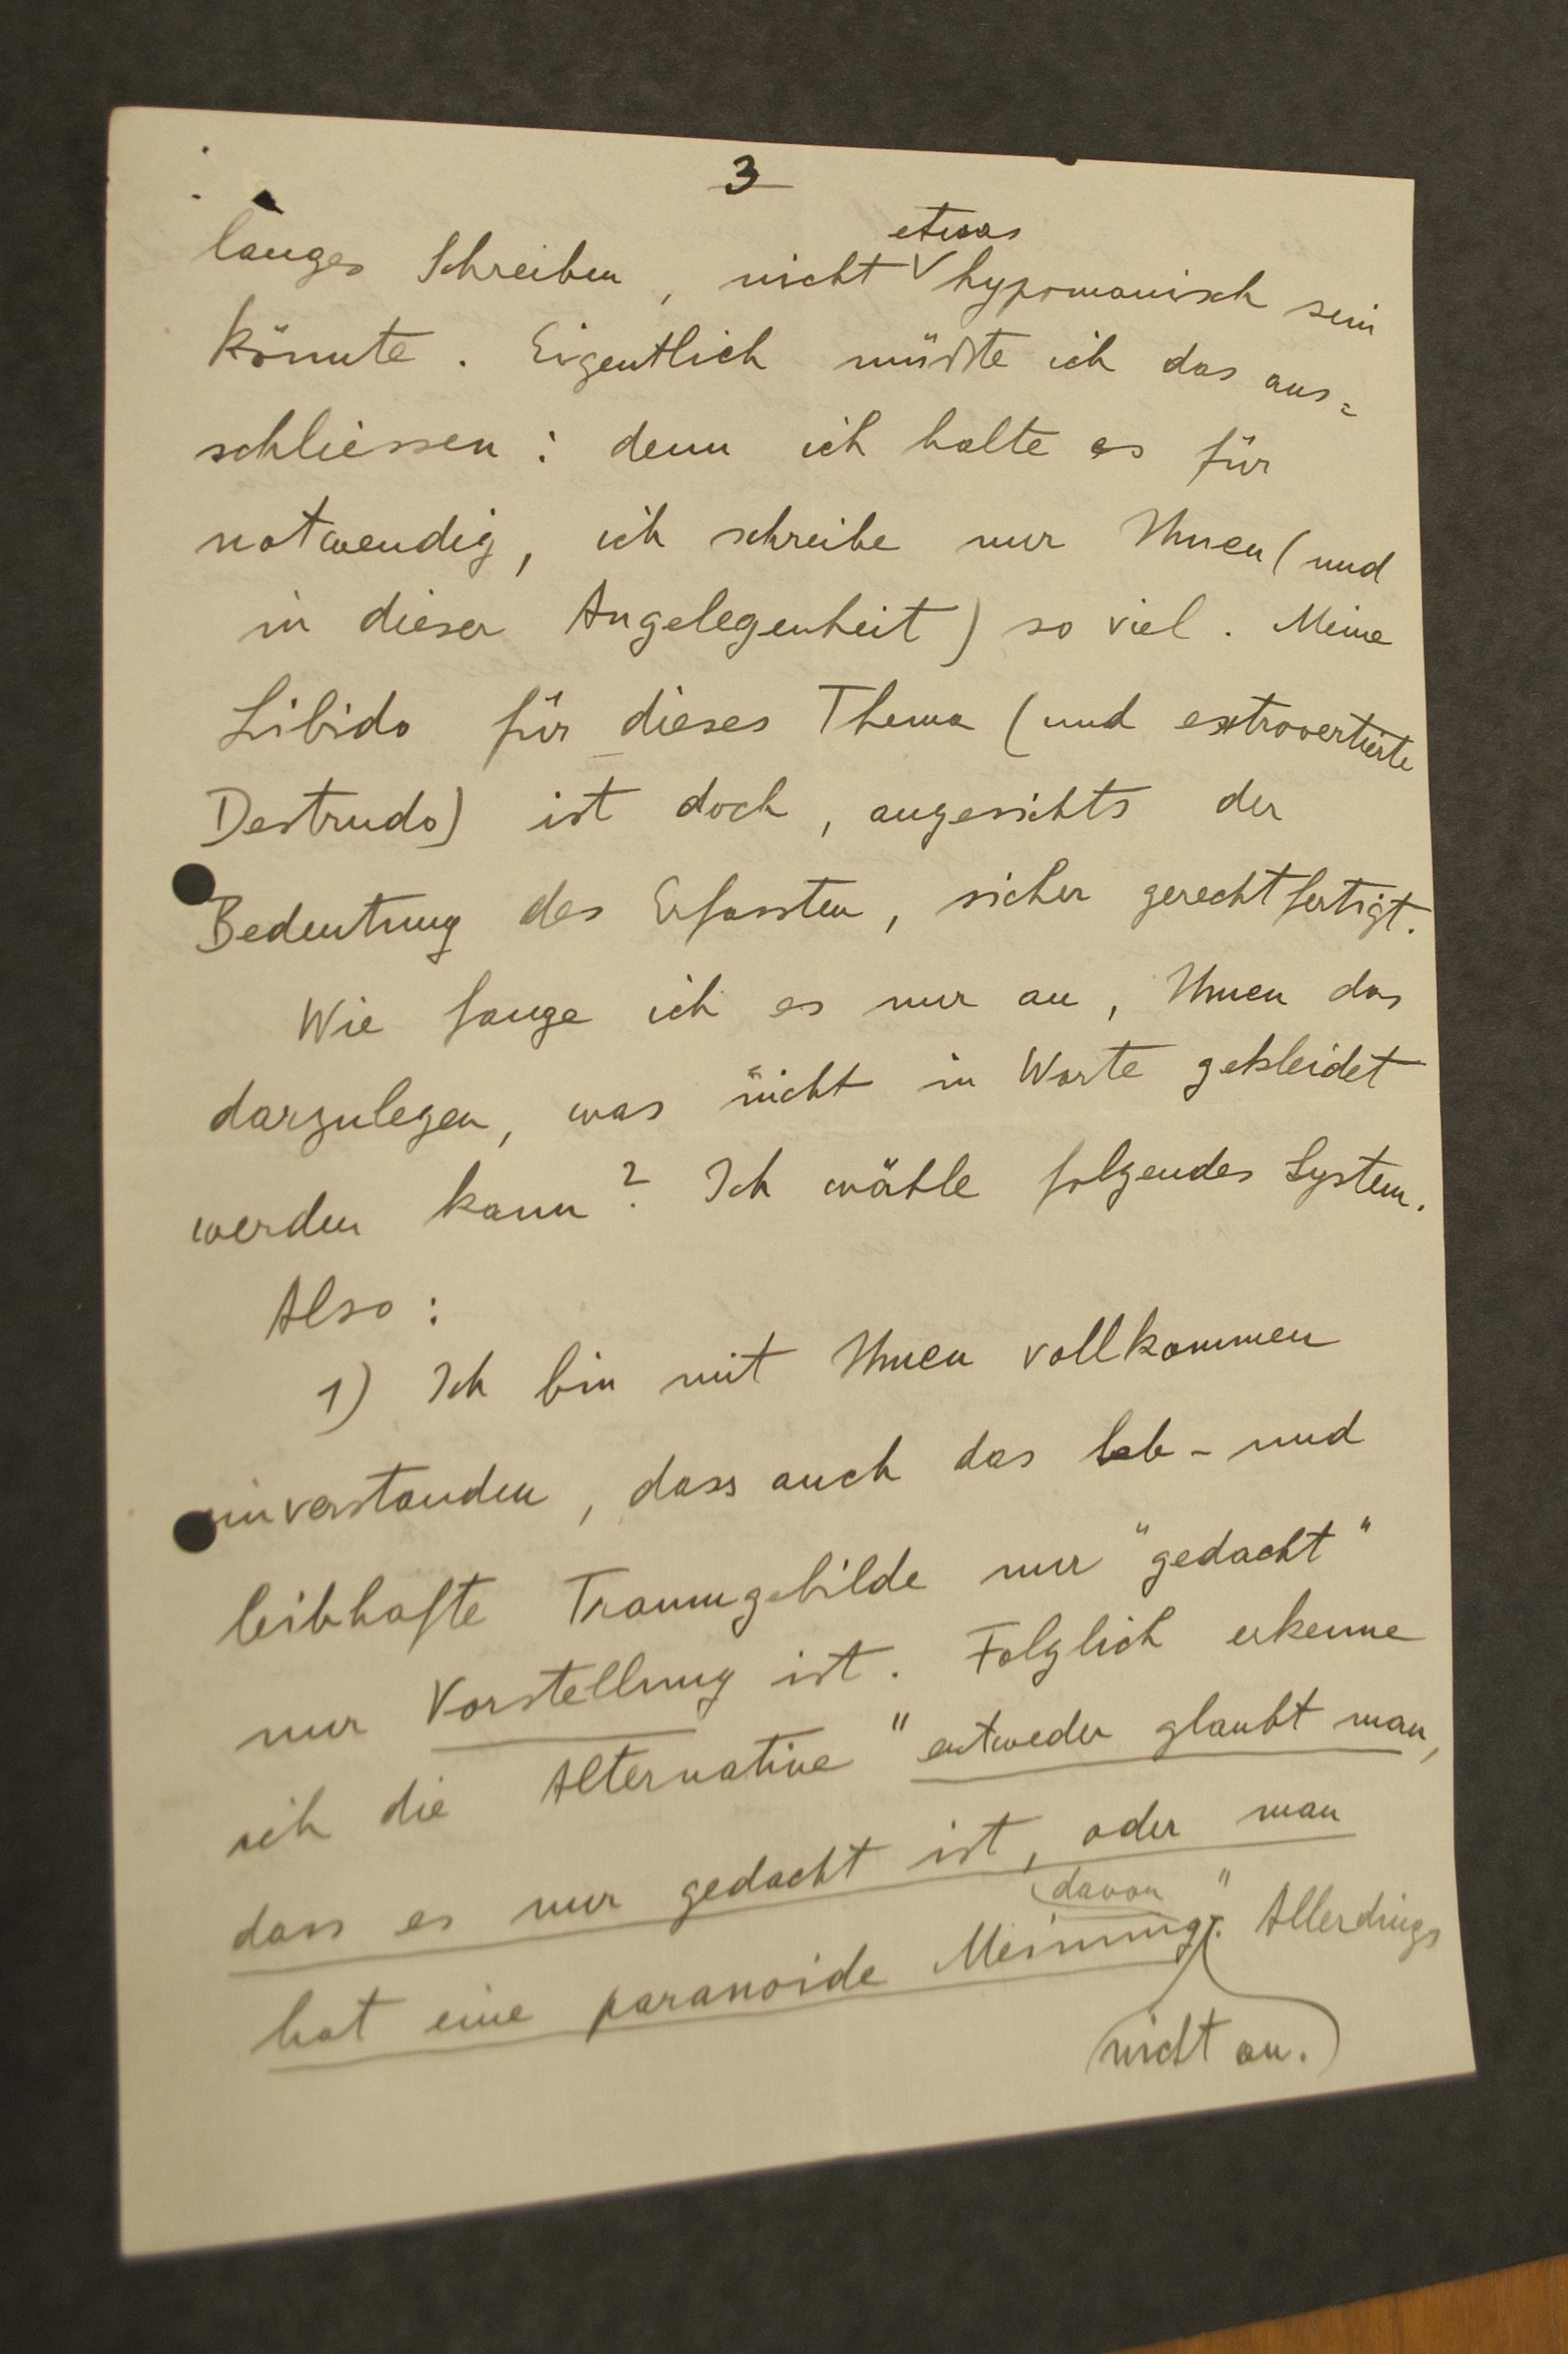 3
etwas
langes Schreiben, nicht hypomanisch sein
könnte. Eigentlich müßte ich das aus=
schliessen: denn ich halte es für
notwendig, ich schreibe nur Ihnen (und
in dieser Angelegenheit) so viel. Meine
Libido für dieses Thema (und extrovertierte
Destrudo) ist doch, angesichts der
Bedeutung des Erfassten, sicher gerechtfertigt.
Wie fange ich es nur an, Ihnen das
darzulegen, was nicht in Worte gekleidet
werden kann? Ich wähle folgendes System.
Also:
1) Ich bin mit Ihnen vollkommen
einverstanden, dass auch das leb- und
leibhafte Traumgebilde nur "gedacht"
nur Vorstellung ist. Folglich erkenne
ich die Alternative "entweder glaubt man,
dass es nur gedacht ist, oder man
davon
hat eine paranoide Meinung". Allerdings
nicht an.